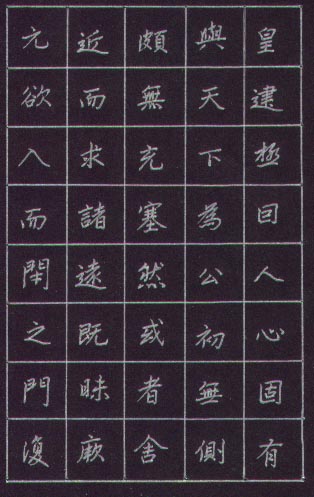 皇建極回人心固有
與天下為公初無側
頗無充塞然或者舍
近而求諸遠既昧厥
元欲入而閉之門復